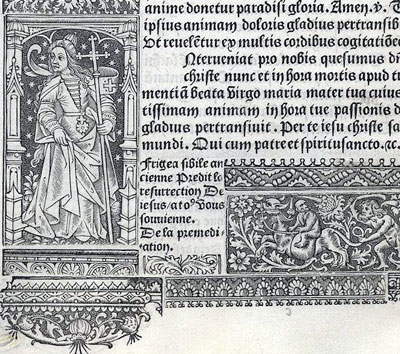 anime donetur paradisi gloria. Amen. v. T
ipsius animam doloris gladius pertransib
Ut reueletur ex multis cordibus cogitatiões
Nterueniat pro nobis quesumus dñ
christe nunc et in hora mortis apud t
mentiā beata Virgo maria mater tua cuius
tissimam animam in hora tue passionis d
gladius pertransiuit. Per te iesu christe sa
mundi. Qui cum patre et spiritusancto. ⁊c.
Frigea sibile an
cienne Predit la
resurrection De
iesus/a toꝰ Vous
souuienne.
De la premedi
tation.
c